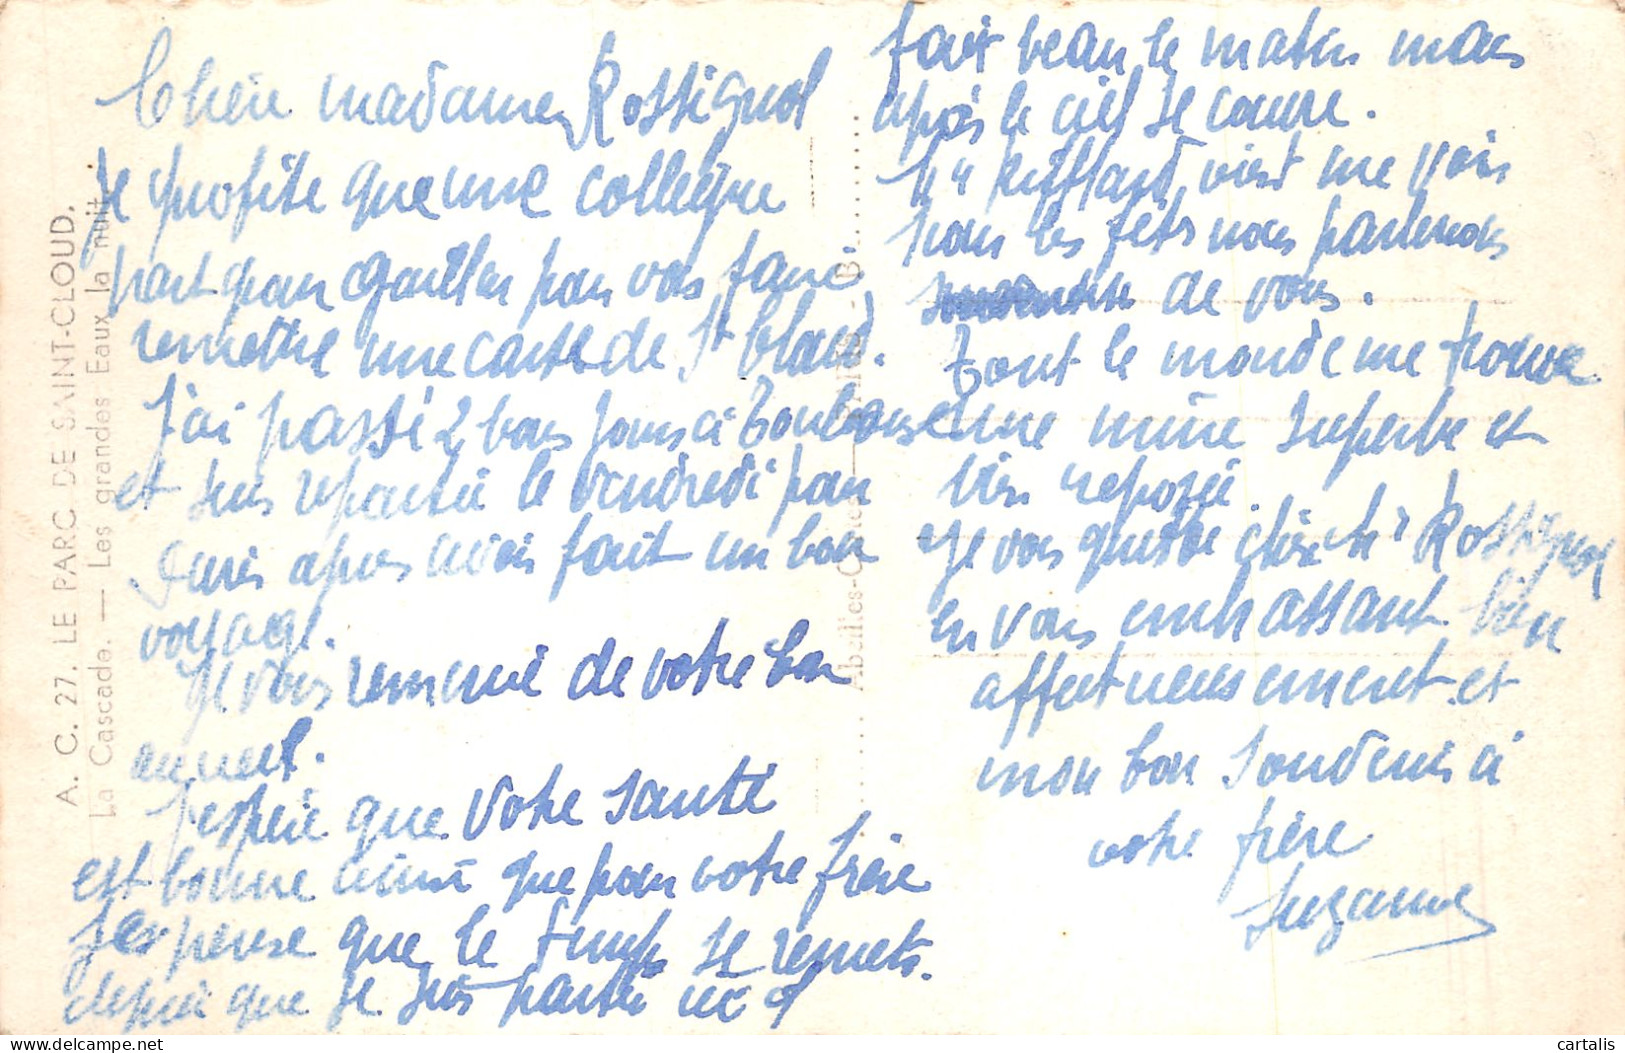 Chère madame Rossignol
Je profite que une collègue
part pour Gaillac pour vous faire
remettre une carte de St Cloud.
J'ai passé 2 bons jours à Toulouse
et suis repartie le vendredi pour
Paris apres avoir fait un bon
voyage.
Je vous remercie de votre bon
accueil.
J'espère que votre santé
est bonne ainsi que pour votre frère
J'espense que le temps se remets.
depuis que je suis partie ici
fait beau le matin mais
après le ciel se couvre.
Riffard vient me voir
pour les fêts nous parlerons
de vous.
Tout le monde me trouve
une mine superbe et
très reposée.
Je vous quitte chère Rossignol
en vous embrassant bien
affectueusement et
mon bon souvenir à
votre frère
Suzanne
A. C. 27. LE PARC DE SAINT-CLOUD.
La Cascade. — Les grandes Eaux la nuit
cartalis